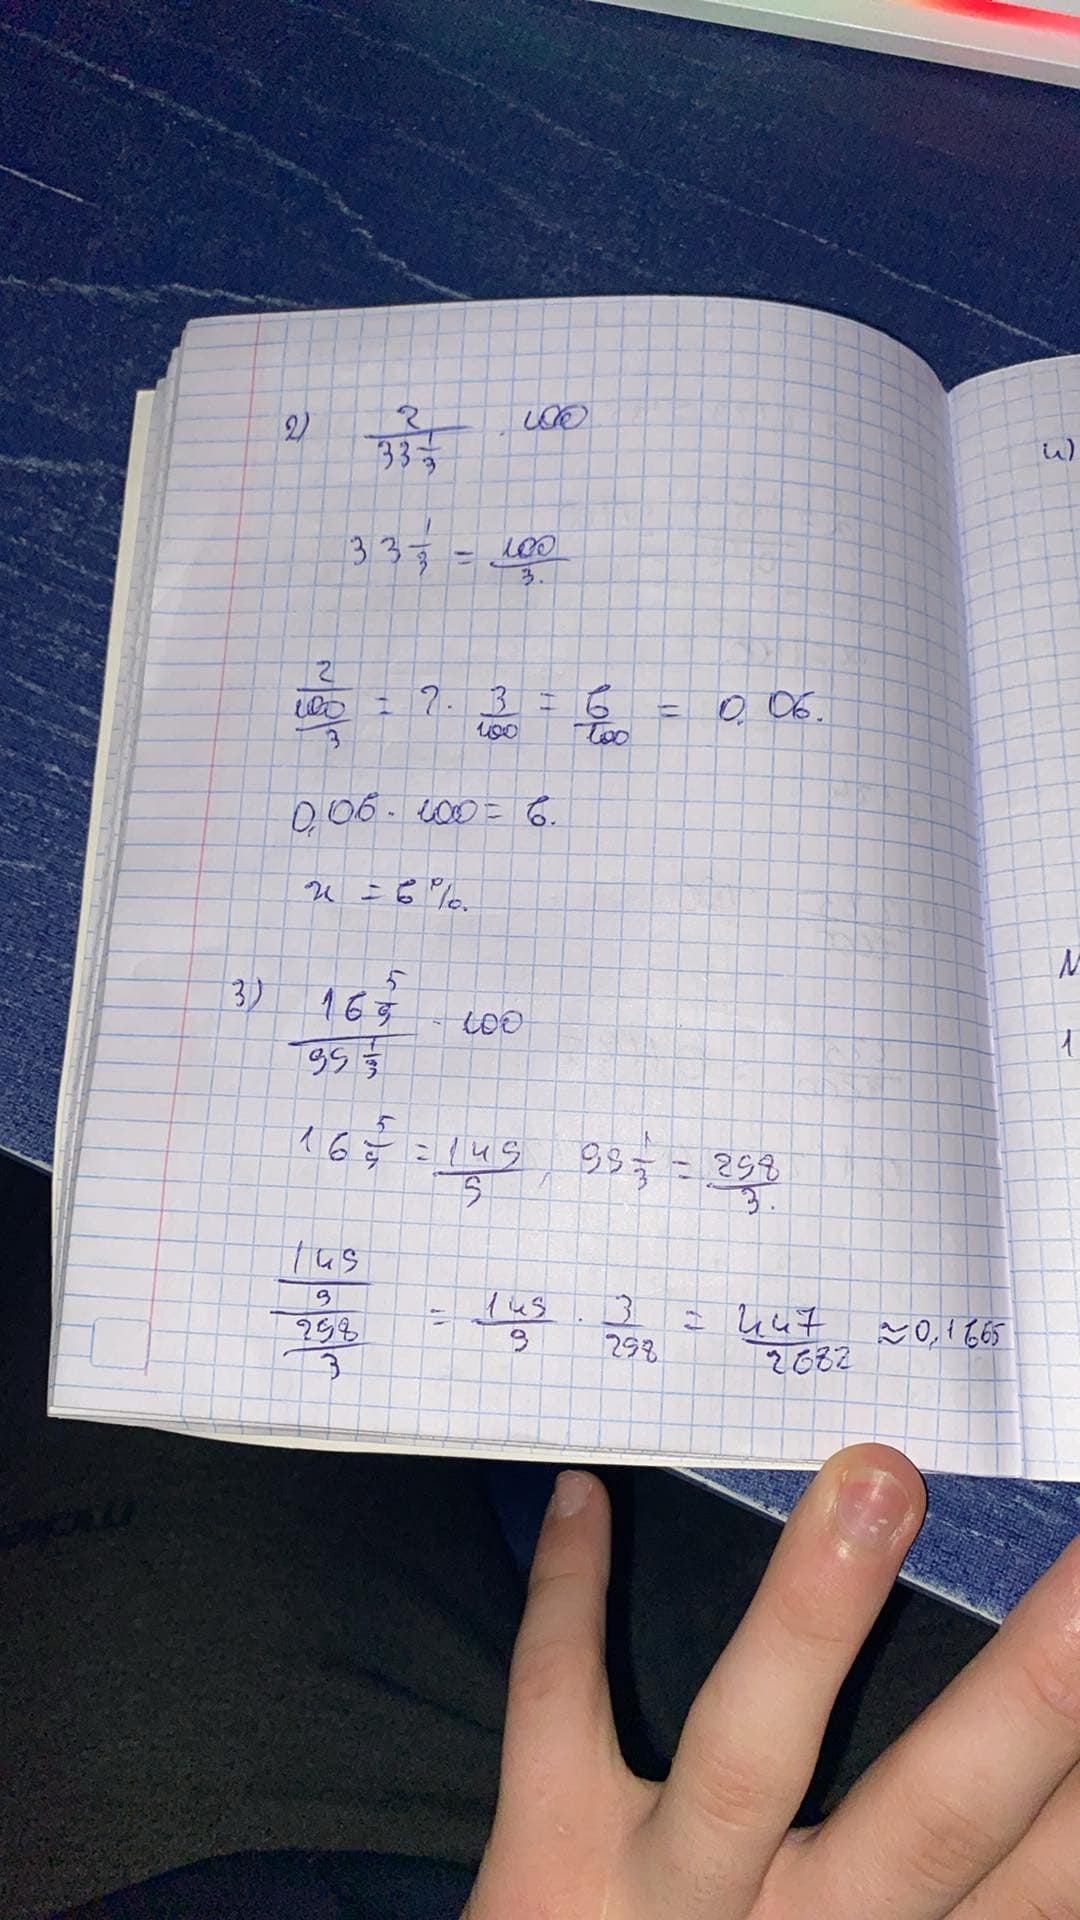 2) 2/(33 1/3) · 100
33 1/3 = 100/3.
2/(100/3) = 2 · 3/100 = 6/100 = 0,06.
0,06 · 100 = 6.
x = 6%.
3) (16 5/9)/(99 1/3) · 100
16 5/9 = 149/9, 99 1/3 = 298/3.
(149/9)/(298/3) = 149/9 · 3/298 = 447/2682 ≈ 0,1665
4)
N
1